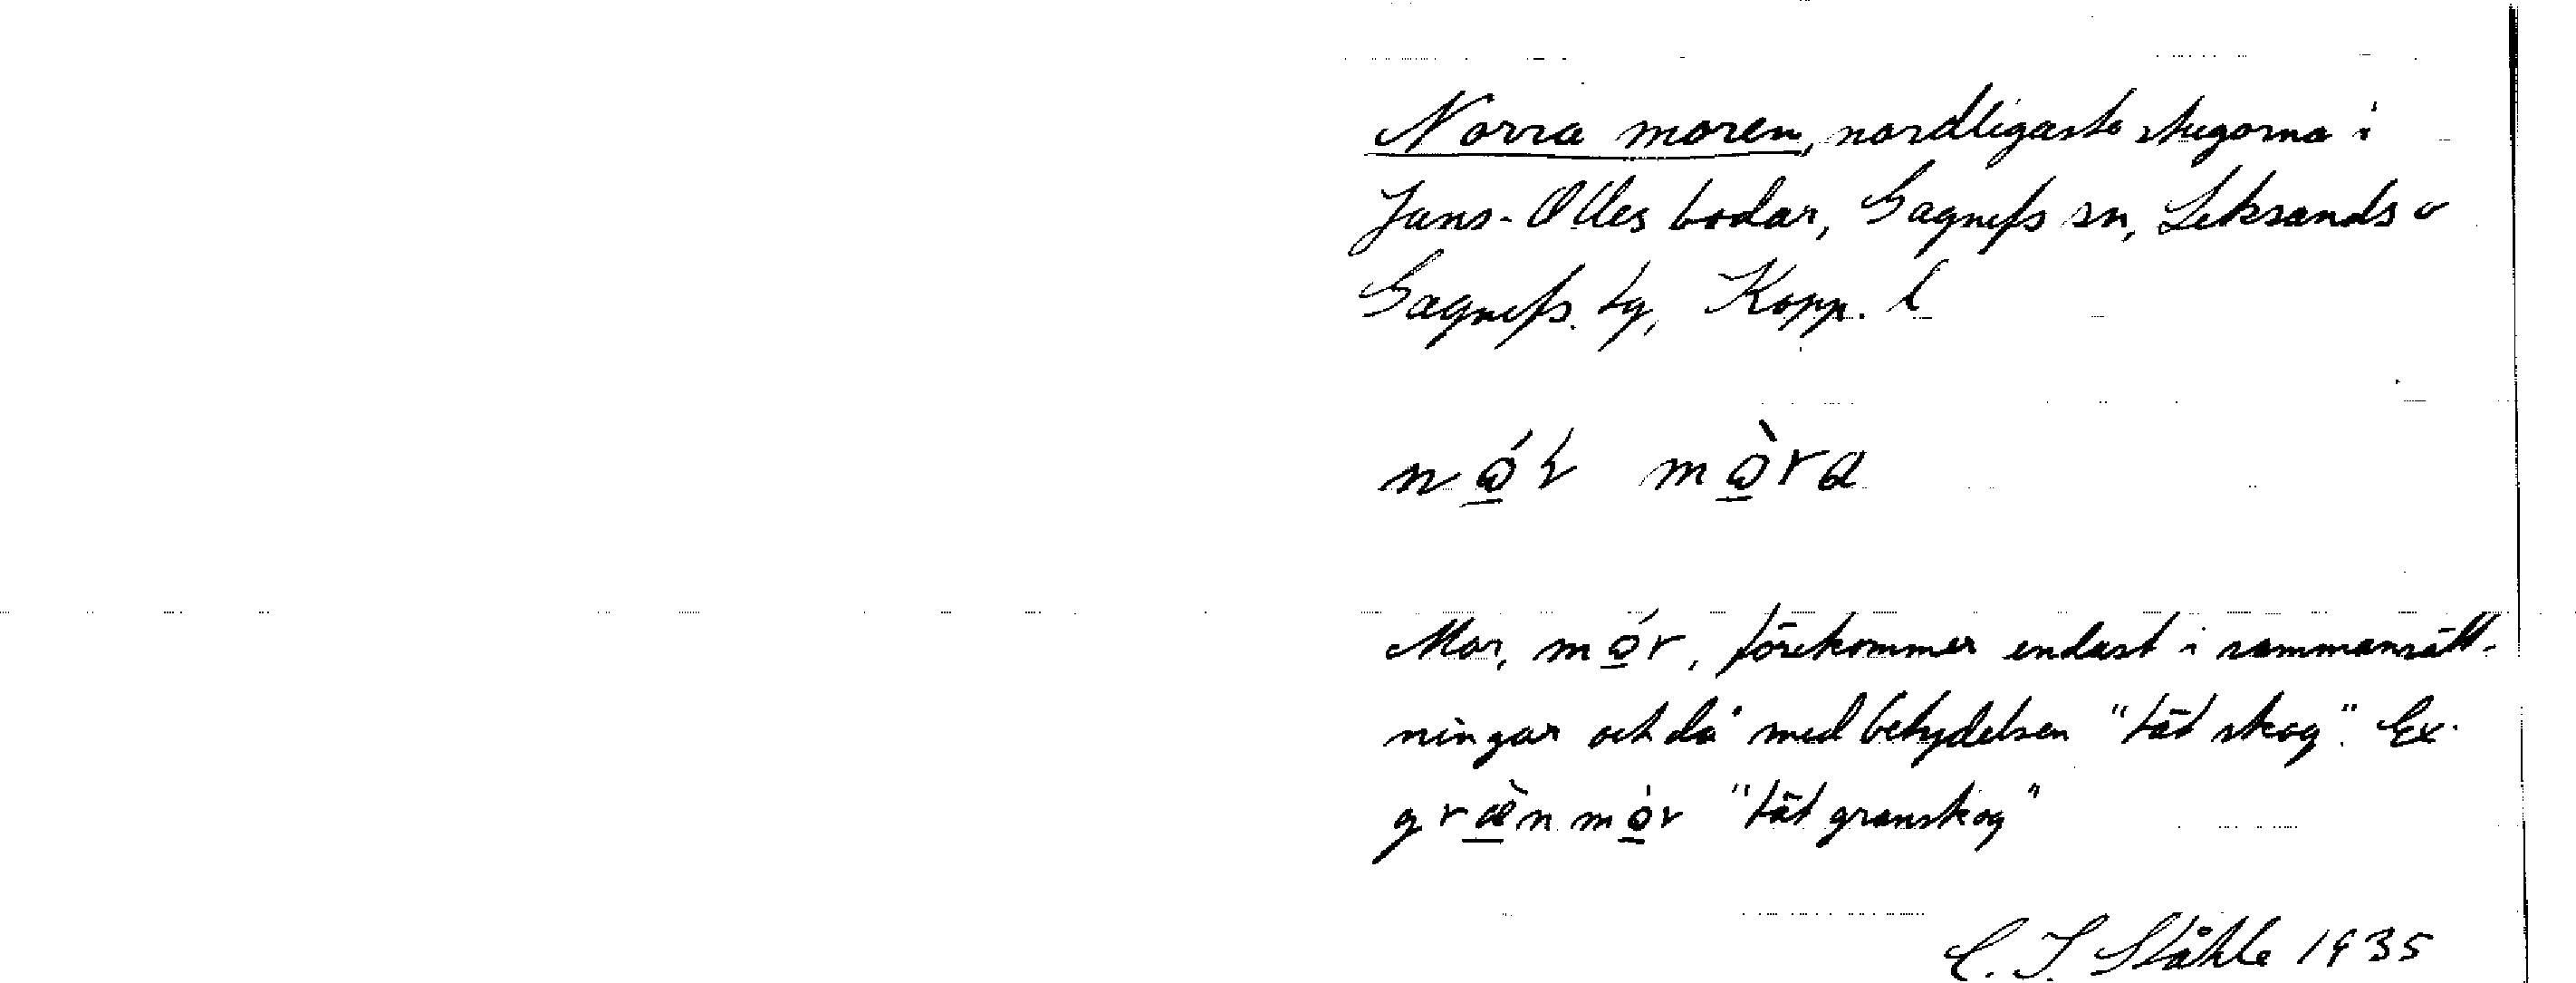 Norra moren, nordligaste stugorna i
Jans-Olles bodar, Gagnefs sn, Leksands o
Gagnefs tg, Kopp. l
Mor, mo̲r, förekommer endast i sammansätt-
ningar och då med betydelsen "tät skog". Ex.
"tät granskog"
C. I. Ståhle 1935